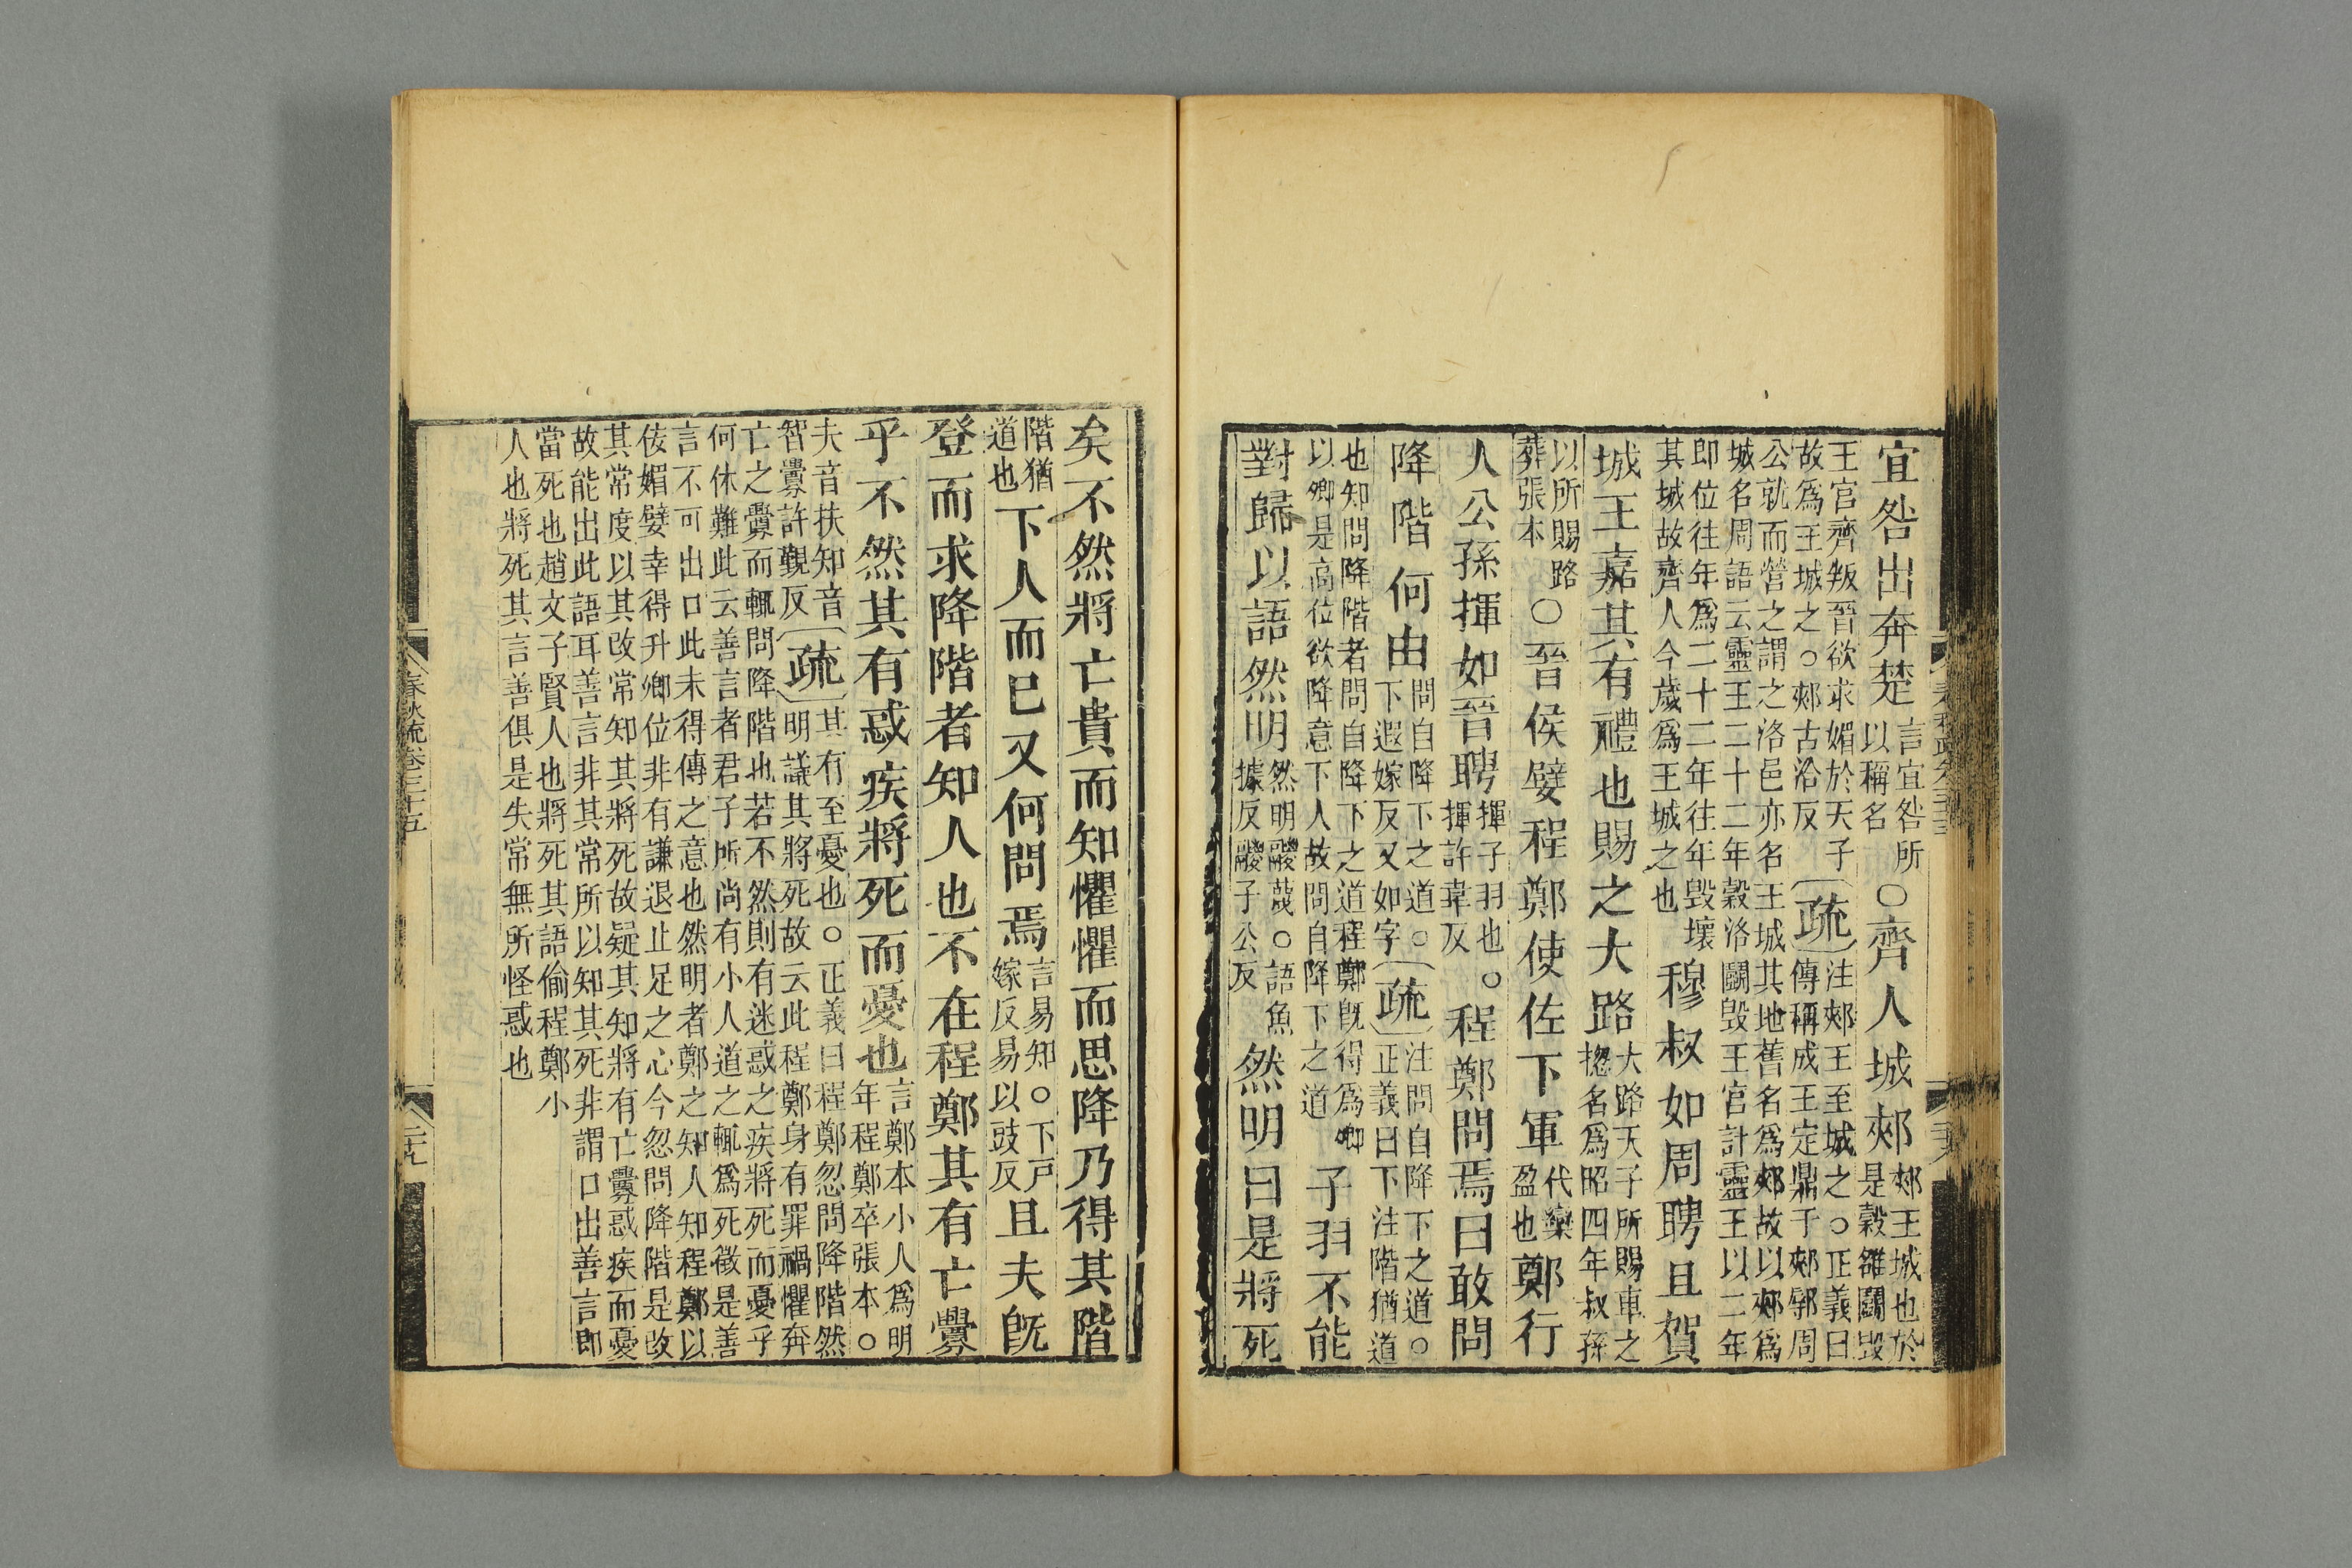 宜咎出奔楚言宜咎所以稱名○齊人城郟郟王城也於是穀雒鬭毀
王宮齊叛晉欲求媚於天子〔疏〕注郟王至城之○正義曰
故爲王城之○郟古洽反傳稱成王定鼎于郟鄏周
公就而營之謂之洛邑亦名王城其地舊名爲郟故以郟爲
城名周語云靈王二十二年穀洛鬭毀王宮計靈王以二年
即位往年爲二十二年往年毀壞
其城故齊人今歲爲王城之也
穆叔如周聘且賀
城王嘉其有禮也賜之大路大路天子所賜車之揔名爲昭四年叔孫
以所賜路葬張本○晉侯嬖程鄭使佐下軍代欒盈也鄭行
人公孫揮如晉聘揮子羽也○揮許韋反程鄭問焉曰敢問
降階何由問自降下之道○下遐嫁反又如字〔疏〕注問自降下之道○正義曰下注階猶道
也知問降階者問自降下之道程鄭既得爲卿
以卿是高位欲降意下人故問自降下之道
子羽不能
對歸以語然明然明鬷蔑○語魚據反鬷子公反然明曰是將死
矣不然將亡貴而知懼懼而思降乃得其階
階猶道也下人而已又何問焉言易知○下戶嫁反易以豉反且夫既
登而求降階者知人也不在程鄭其有亡釁
乎不然其有惑疾將死而憂也言鄭本小人爲明年程鄭卒張本○
夫音扶知音智釁許覲反〔疏〕其有至憂也○正義曰程鄭忽問降階然
明議其將死故云此程鄭身有罪禍懼奔
亡之釁而輒問降階也若不然則有迷惑之疾將死而憂乎
何休難此云善言者君子所尚有小人道之輒爲死徵是善
言不可出口此未得傳之意也然明者鄭之知人知程鄭以
佞媚嬖幸得升卿位非有謙退止足之心今忽問降階是改
其常度以其改常知其將死故疑其知將有亡釁惑疾而憂
故能出此語耳善言非其常所以知其死非謂口出善言即
當死也趙文子賢人也將死其語偷程鄭小
人也將死其言善俱是失常無所怪惑也
春秋疏卷三十五